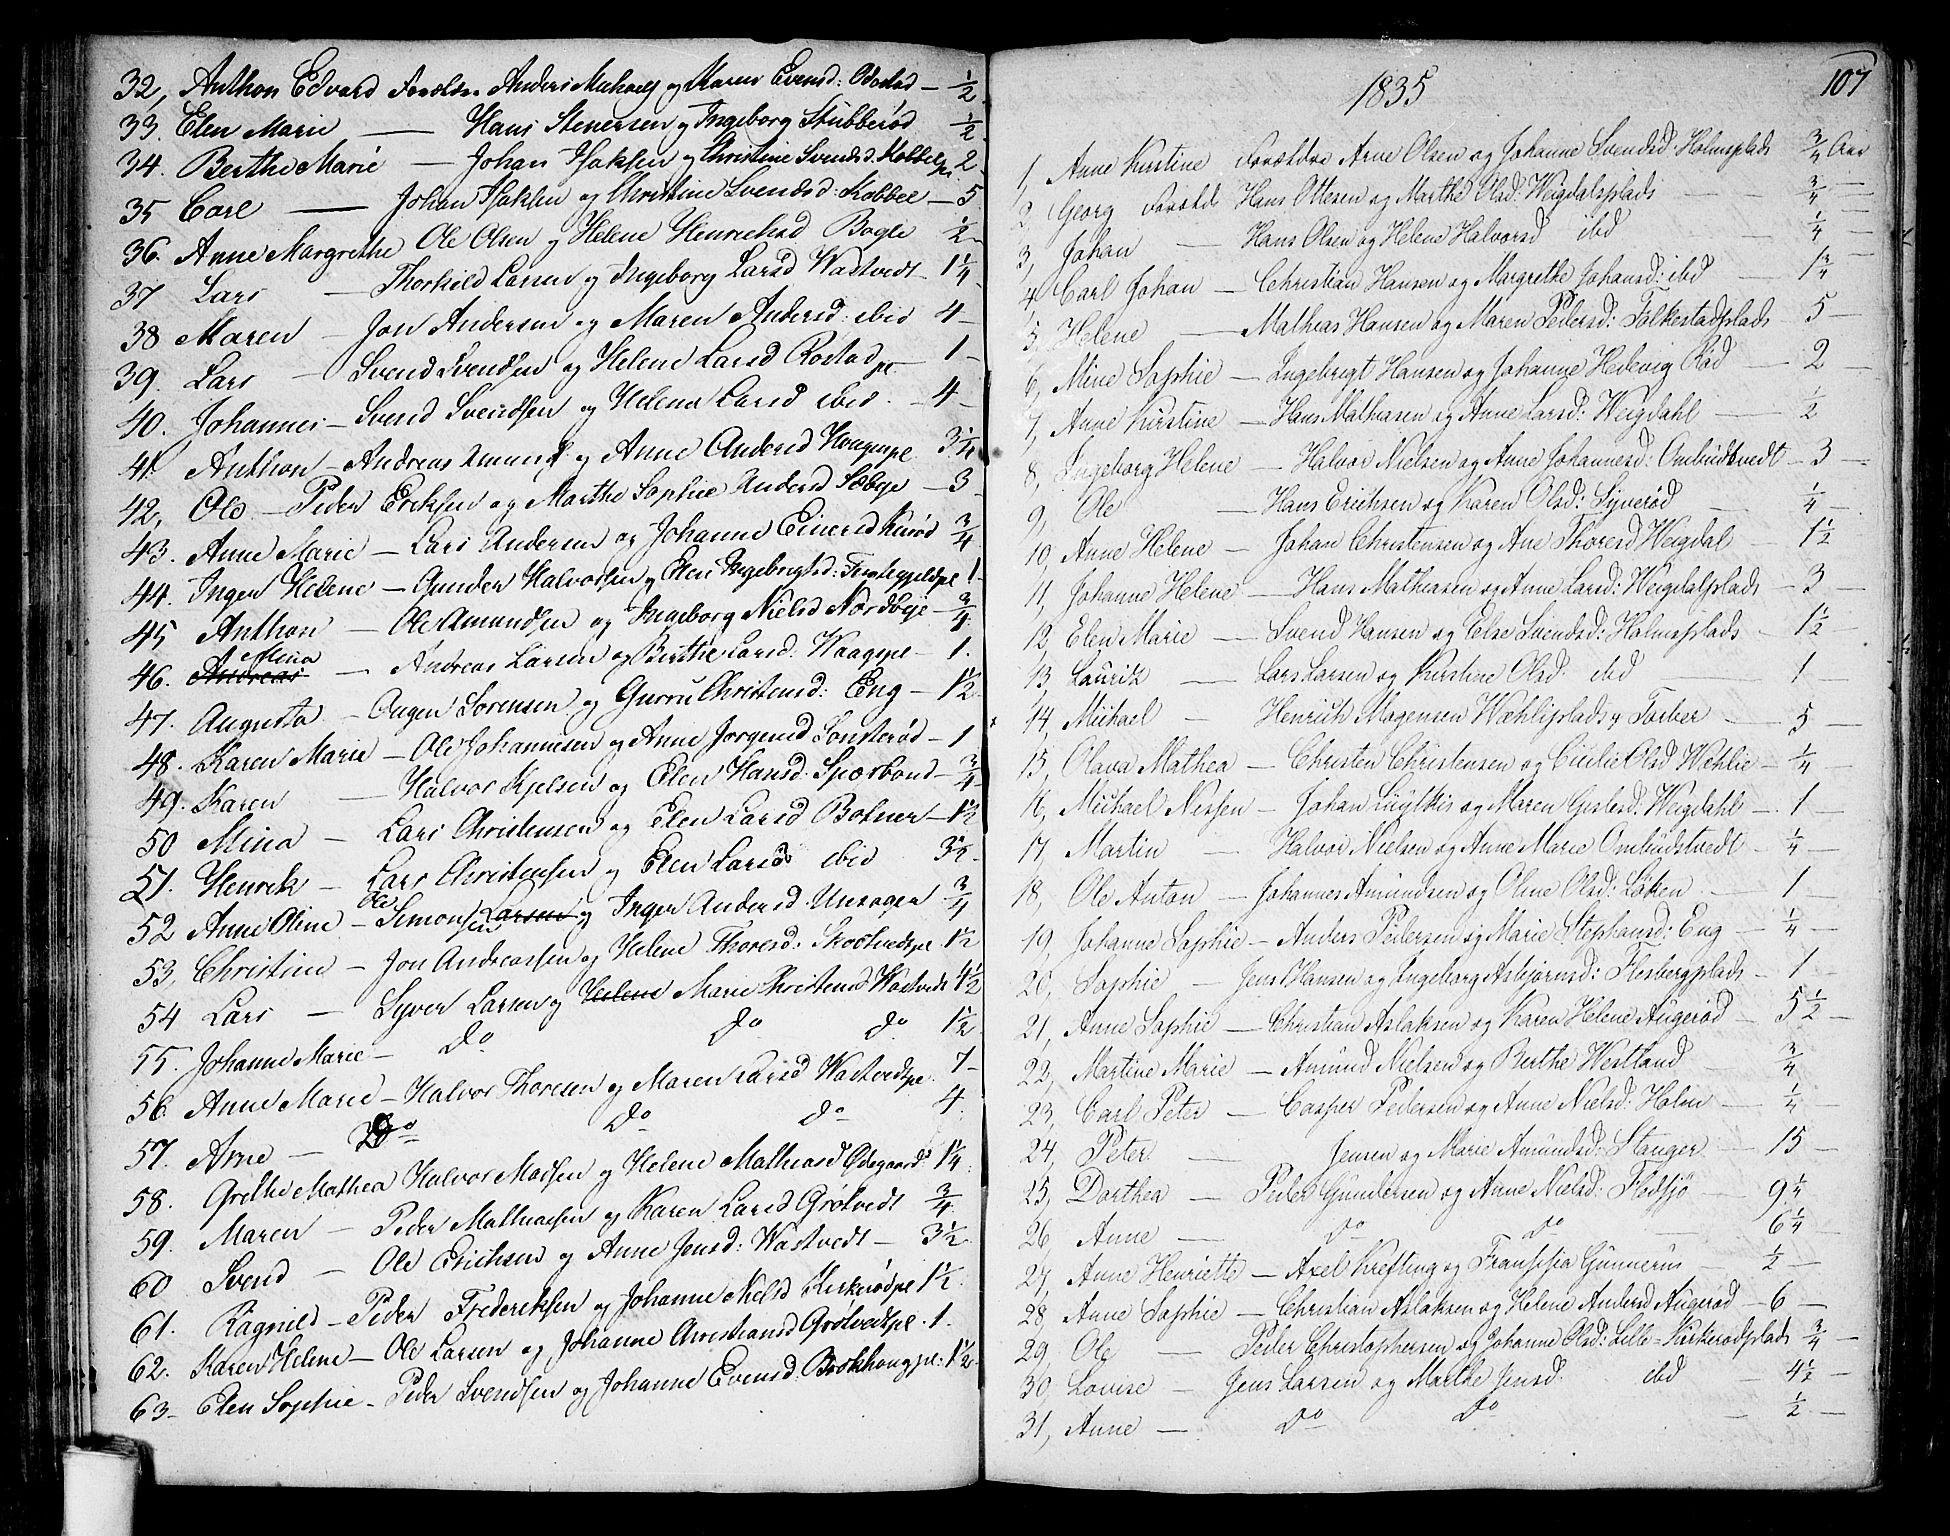 32, Anthon Edvard Forældre Anders Michael og Maren Evensd: Odestad — 1/2
33. Elen Marie — Hans Stenersen og Ingeborg Stubberød 1/2
34. Berthe Marie — Johan Isaksen og Christine Svendsd. Kobbel pl. 2
35 Carl — Johan Isaksen og Christine Svendsd: Kobbel — 5
36. Anne Margrethe Ole Olsen og Helene Henrichsd Bogle 1/2
37 Lars — Thorkild Larsen og Ingeborg Larsd Wastvedt 1 1/4
38 Maren — Jon Andersen og Maren Andersd: ibid 4 —
39. Lars — Svend Svendsen og Helene Larsd Rostad pl — 1 —
40. Johannes — Svend Svendsen og Helena Larsd ibid. — 4 —
41. Anthon — Andreas Amunds og Anne Andersd Hougepl. 3 1/2
42, Ole — Peder Eriksen og Marthe Sophie Andersd Sæbye — 3 —
43. Anne Marie — Lars Andersen og Johanne Einersd Kirød 3/4
44. Inger Helene — Gunder Halvorsen og Elen Ingebrigtsd: pl 1 —
45 Anthon — Ole Amundsen og Ingeborg Nielsd Nordbye — 3/4
46. Andreas Mina — Andreas Larsen og Berthe Larsd. Haagepl — 1.
47. Augusta — Ougen Sørensen og Gurru Christensd: Eng — 1 1/2
48. Karen Marie — Ole Johannesen og Anne Jørgensd Sonsterød — 1
49. Karen — Halvor Kjelsen og Elen Hansd. Sparbond — 3/4
50 Mina — Lars Christensen og Elen Larsd Bolner — 1 1/2
51. Henrik — Lars Christensen og Elen Larsd ibid 3 1/2
52 Anne Oline — Ole Simonsen Larsen og Inger Andersd Unsagen 3/4
53, Christine — Jon Andreassen og Helene Thoresd: Skostvedtpl 1 1/2
54 Lars — Syver Larsen og Helene Marie Christensd Wastvedt 4 1/2
55. Johanne Marie — Do Do Do 1 1/2
56. Anne Marie — Halvor Thoresen og Maren Larsd Wastvedtpl. 7 —
57. Arne — Do Do Do 4.
58. Grethe Mathea Halvor Madsen og Helene Mathiasd Ødegaard 1 1/4
59. Maren — Peder Mathiasen og Karen Larsd Grøtvedt 3/4
60 Svend — Ole Erichsen og Anne Jensd: Wastvedt — 3 1/2
61. Ragnild — Peder Frederiksen og Johanne Nielsd Kirkerødpl 1 1/2
62. Karen Helene — Ole Larsen og Johanne Christiansd Grøtvedtpl. 1.
63 — Elen Sophie — Peder Svendsen og Johanne Evensd. Brokhougpl: 1 1/2
107
1835
1, Anne Kirstine Forældre Arne Olsen og Johanne Svendsd: Holmsplads 3/4 Aar
2, Georg Foræld: Hans Ottesen og Marthe Olsd: Weigdalsplads — 3/4 —
3, Johan — Hans Olsen og Helene Halvorsd ibid 1/4 —
4, Carl Johan — Christian Hansen og Margrethe Johansd: ibid — 1 3/4
5, Helene — Mathias Hansen og Maren Pedersd: Folkestadplads 5 —
6, Mine Sophie — Ingebrigt Hansen og Johanne Hedevig Rød — 2 —
7, Anne Kirstine — Hans Mathiasen og Anne Larsd: Weigdahl — 1/2
8, Ingeborg Helene — Halvor Nielsen og Anne Johannesd: Ombudstvedt — 3 —
9, Ole — Hans Erichsen og Karen Olsd: Syverød — 1/4 —
10, Anne Helene — Johan Christensen og Ane Thoresd Weigdal — 1 1/2
11, Johanne Helene — Hans Mathiasen og Anne Larsd: Weigdalplads — 3 —
12, Elen Marie — Svend Hansen og Else Svendsd: Holmsplads — 1 1/2 —
13, Lauritz — Lars Larsen og Kirstine Olsd. ibid 1
14, Michael — Henrich Mogensen Wæhliplads og Torber — 5 —
15, Olava Mathea — Christen Christensen og Cicilie Olsd Wæhlie — 1/4 —
16, Michael Nissen — Johan Luytkis og Maren Gislesd. Weigdahl — 1 —
17, Martin — Halvor Nielsen og Anne Marie Ombudstvedt — 1/4 —
18, Ole Anton — Johannes Amundsen og Oline Olsd: Løken — 1 —
19, Johanne Sophie — Anders Pedersen og Marie Stephansd: Eng — 1/4 —
20, Sophie — Jens Hansen og Ingeborg Asbjørnsd: Flesbergplads — 1
21, Anne Sophie — Christian Aslaksen og Karen Helene Augerød — 5 1/2 —
22, Martine Marie — Amund Nielsen og Berthe Westland — 3/4
23, Carl Peter — Casper Pedersen og Anne Nielsd: Holm — 1/4 —
24, Peter — Jensen og Marie Amundsd: Stanger — 15 —
25, Dorthea — Peder Gundersen og Anne Nielsd: Flodsjø — 9 1/4
26, Anne — Do Do — 6 1/4 —
27, Anne Henriette — Axel Krefting og Fransisja Gunnerus — 1/2 —
28, Anne Sophie — Christian Aslaksen og Helene Andersd Augerød — 6 —
29, Ole — Peder Christophersen og Johanne Olsd: Lille-Kirkerødplads 3/4 —
30, Lovise — Jens Larsen og Marthe Jensd. ibd — 4 1/2 —
31, Anne — Do Do — 1/2 —